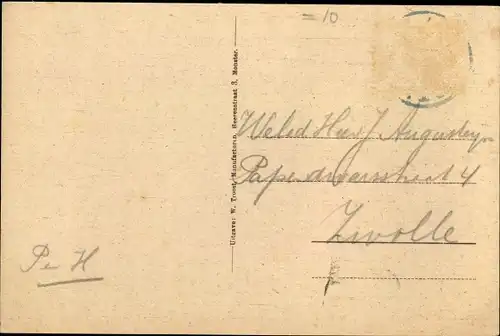 = 10
Uitgave: W. Troost, Manufacturen, Heerenstraat 3, Monster.
Weled Heer J Augusteyn
Papendwarsstraat 4
Zwolle
P e H